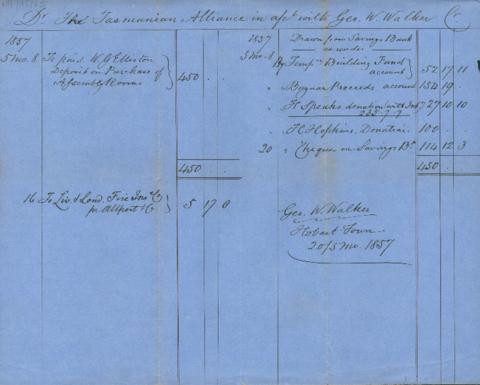 Dr. The Tasmanian Alliance in a/ct with Geo. W. Walker Cr.
1857
5 mo. 8 To paid W. G. Elliston
Deposit on Purchase of
Assembly Rooms
450 . .
450
16 To Liv. & Lond. Fire Insce. Co.
pr. Allport & Co.
5 17 0
1857
Drawn from Savings Bank
as under
5 mo. 8 By Tempce. Building Fund
account
52 17 11
" Bazaar Proceeds account 154 19 .
" H Speaks donation with Int. 27 10 10
235.7.9
H. Hopkins, Donation 100 . .
20 " Cheque on Savings Bk. 114 12 3
450
Geo. W. Walker
Hobart Town
20/5 mo. 1857